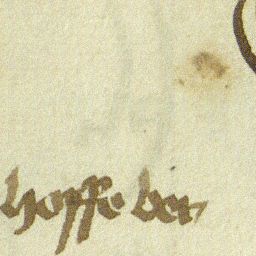 hoffe ber